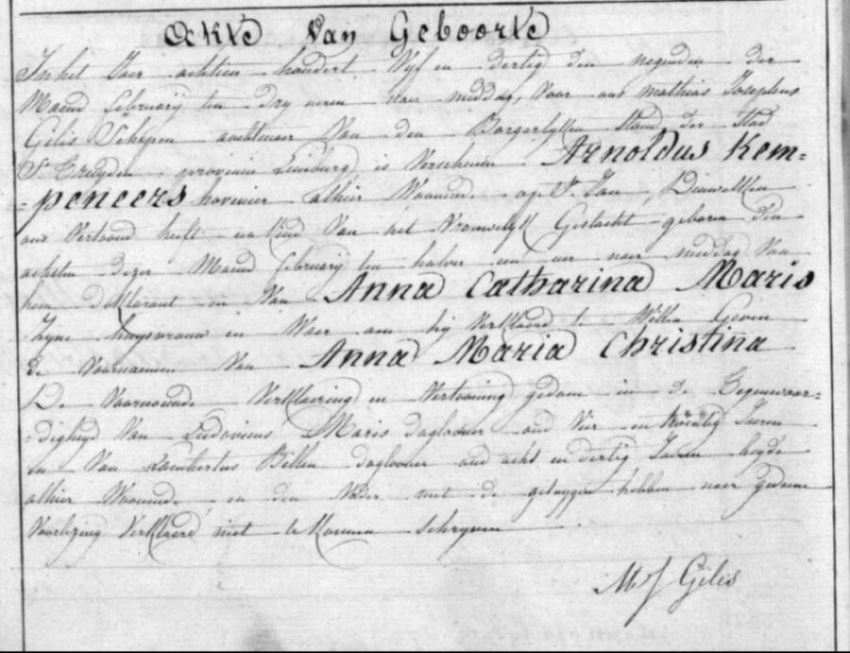 Akte Van Geboorte
In het Jaer achtien hondert Vyf en dertig den negenden der
Maend february ten dry uren naer middag, Voor ons mathias Josephus
Gilis Schepen ambtenaer Van den Borgerlyken Stand der Stad
St Truyden, provincie Limburg, is Verschenen Arnoldus Kem=
=peneers hovenier alhier Woonende op St Jan, Dieuwelken
ons Vertoond heeft een kind Van het Vrouwelyk Geslacht geboren den
achsten dezer Maend february ten halver een uer naer middag Van
hem deklarant en Van Anna Catharina Maris
Zyne huysvrouw en Waer aen hy Verklaerd te Willen Geven
de Voornaemen Van Anna Maria Christina
De Voornoemde Verklaering en Vertooning gedaen in de Tegenwoor=
=digheyd Van Ludovicus Maris daglooner oud Vier en twintig Jaeren
en Van Lambertus Billen daglooner oud acht en dertig Jaeren beyde
alhier Woonende, en den Vader met de getuygen hebben naer gedaene
Voorlezing Verklaerd niet te konnen schryven
M J Gilis